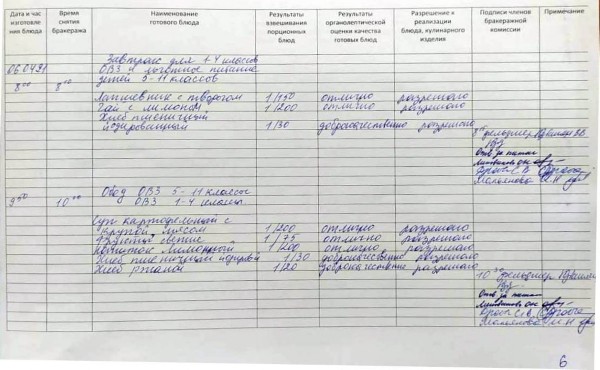 Дата и час изготовления блюда | Время снятия бракеража | Наименование готового блюда | Результаты взвешивания порционных блюд | Результаты органолептической оценки качества готовых блюд | Разрешение к реализации блюда, кулинарного изделия | Подписи членов бракеражной комиссии | Примечание
Завтрак для 1-4 класов
06.04.21 ОВЗ и льготное питание
8⁰⁰ 8¹⁰ детей 5-11 классов
Лапшевник с творогом 1/150 отлично разрешено
Чай с лимоном 1/200 отлично разрешено
Хлеб пшеничный
йодированный 1/30 доброкачественно разрешено
Отв за питан
Обед ОВЗ 5-11 классы
10⁰⁰ ОВЗ 1-4 класы
Суп картофельный с
крупой, мясом 1/200 отлично разрешено
1/75 отлично разрешено
Напиток Лимонный 1/200 отлично разрешено
Хлеб пшеничный йодиров 1/30 доброкачественно разрешено
Хлеб ржаной 1/20 доброкачественно разрешено
10³⁰
Отв за питан
6